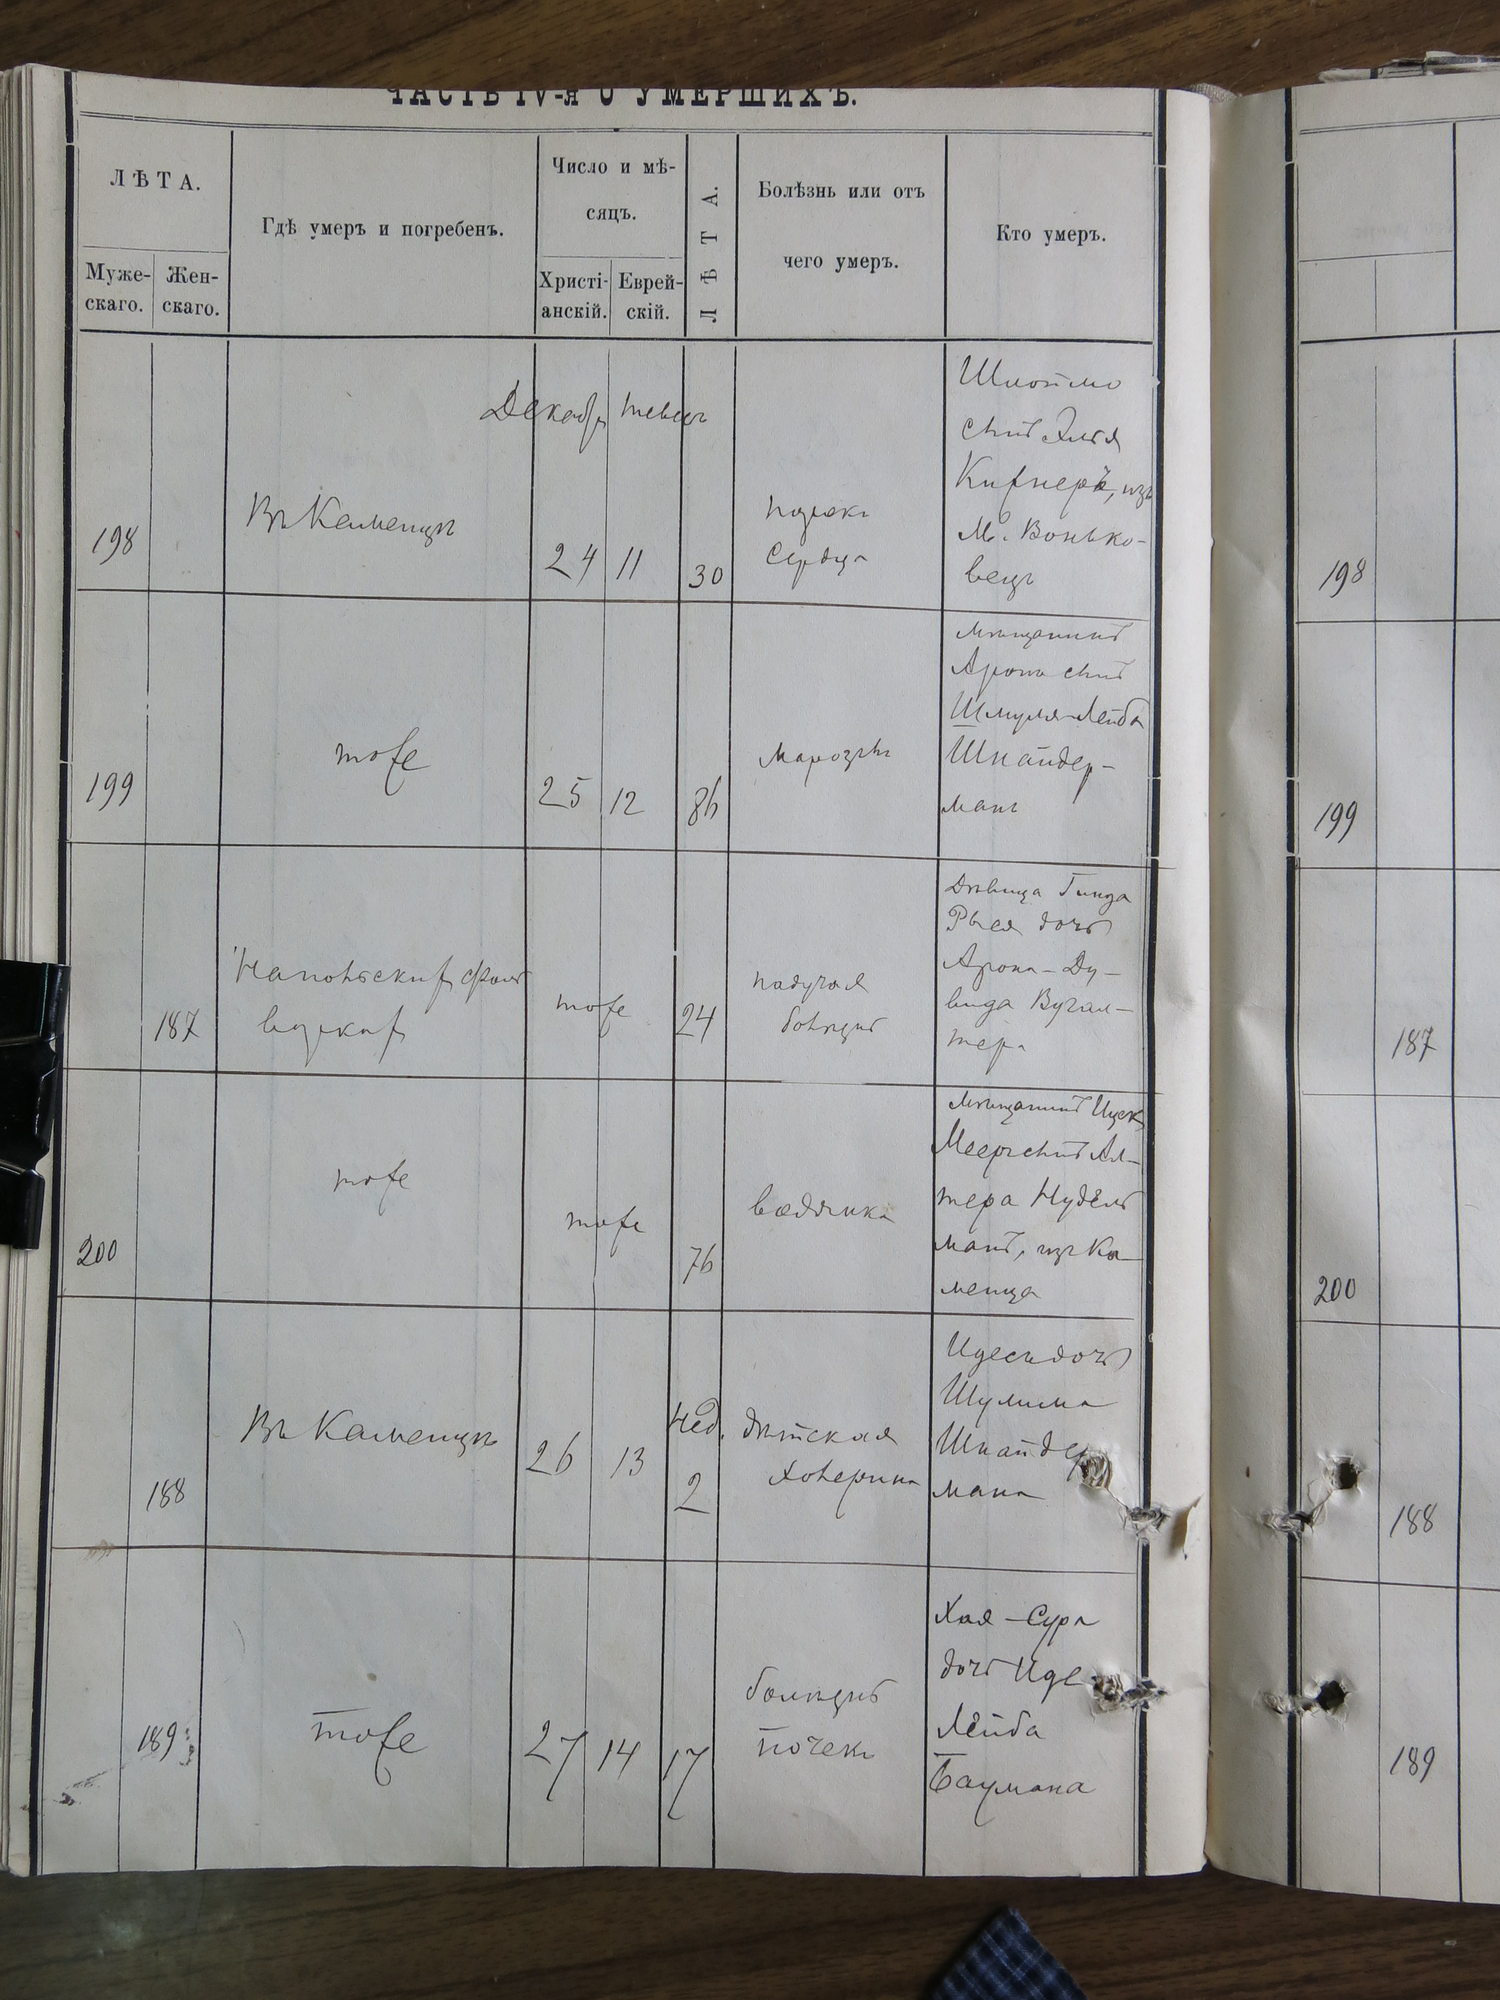 ЧАСТЬ IV-я О УМЕРШИХЪ.
ЛѢТА.
Муже-
скаго.
Жен-
скаго.
Гдѣ умеръ и погребенъ.
Число и мѣ-
сяцъ.
Христі-
анскій.
Еврей-
скій.
ЛѢТА.
Болѣзнь или отъ
чего умеръ.
Кто умеръ.
Декабр тевесъ
198
Въ Каменцѣ
24
11
30
порокъ
сердца
Шлойме
сынъ Эля
Кирнеръ, изъ
М. Вонько-
вецъ
199
тоже
25
12
86
Мѣщанинъ
Арона сынъ
Шмуля-Лейба
Шнайдер-
манъ
187
тоже
24
падучая
болѣзнь
Дѣвица Гинда
Рыся дочь
Арона-Ду-
вида Бухгал-
тера
200
тоже
тоже
76
водянка
Мѣщанинъ Ицек
Мееръ сынъ Ал-
тера Нудель
манъ, изъ Ка-
менца
188
Въ Каменцѣ
26
13
Нед.
2
дѣтская
холерина
Идесъ дочь
Шулима
Шнайдер
мана
189
тоже
27
14
17
болѣзнь
почекъ
Хая-Сура
дочь Иде
Лейба
Баумана
198
199
187
200
188
189